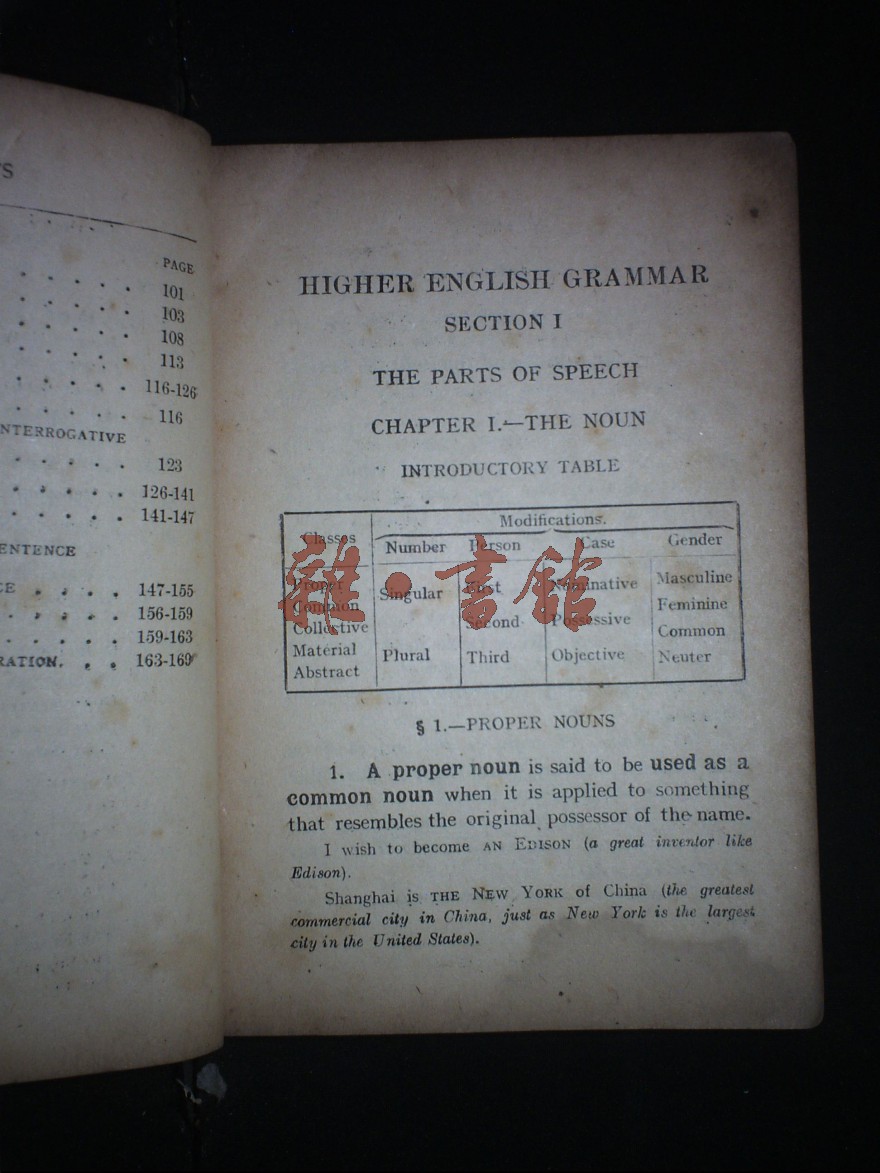 TS
PAGE
101
103
108
113
116-126
116
NTERROGATIVE
123
126-141
141-147
ENTENCE
CE . . . . 147-155
156-159
159-163
RATION. . . 163-169
HIGHER ENGLISH GRAMMAR
SECTION I
THE PARTS OF SPEECH
CHAPTER I.—THE NOUN
INTRODUCTORY TABLE
Classes
Modifications.
Number Person Case Gender
Proper
Common
Collective
Material
Abstract
Singular
Plural
First
Second
Third
Nominative
Possessive
Objective
Masculine
Feminine
Common
Neuter
雜·書館
§ 1.—PROPER NOUNS
1. A proper noun is said to be used as a
common noun when it is applied to something
that resembles the original possessor of the name.
I wish to become AN EDISON (a great inventor like
Edison).
Shanghai is THE NEW YORK of China (the greatest
commercial city in China, just as New York is the largest
city in the United States).